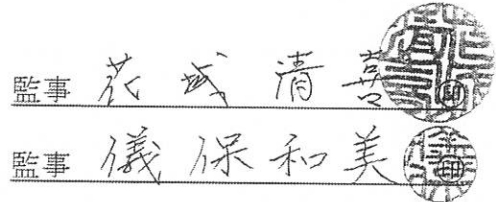 監事 花城清喜 印
監事 儀保和美 印